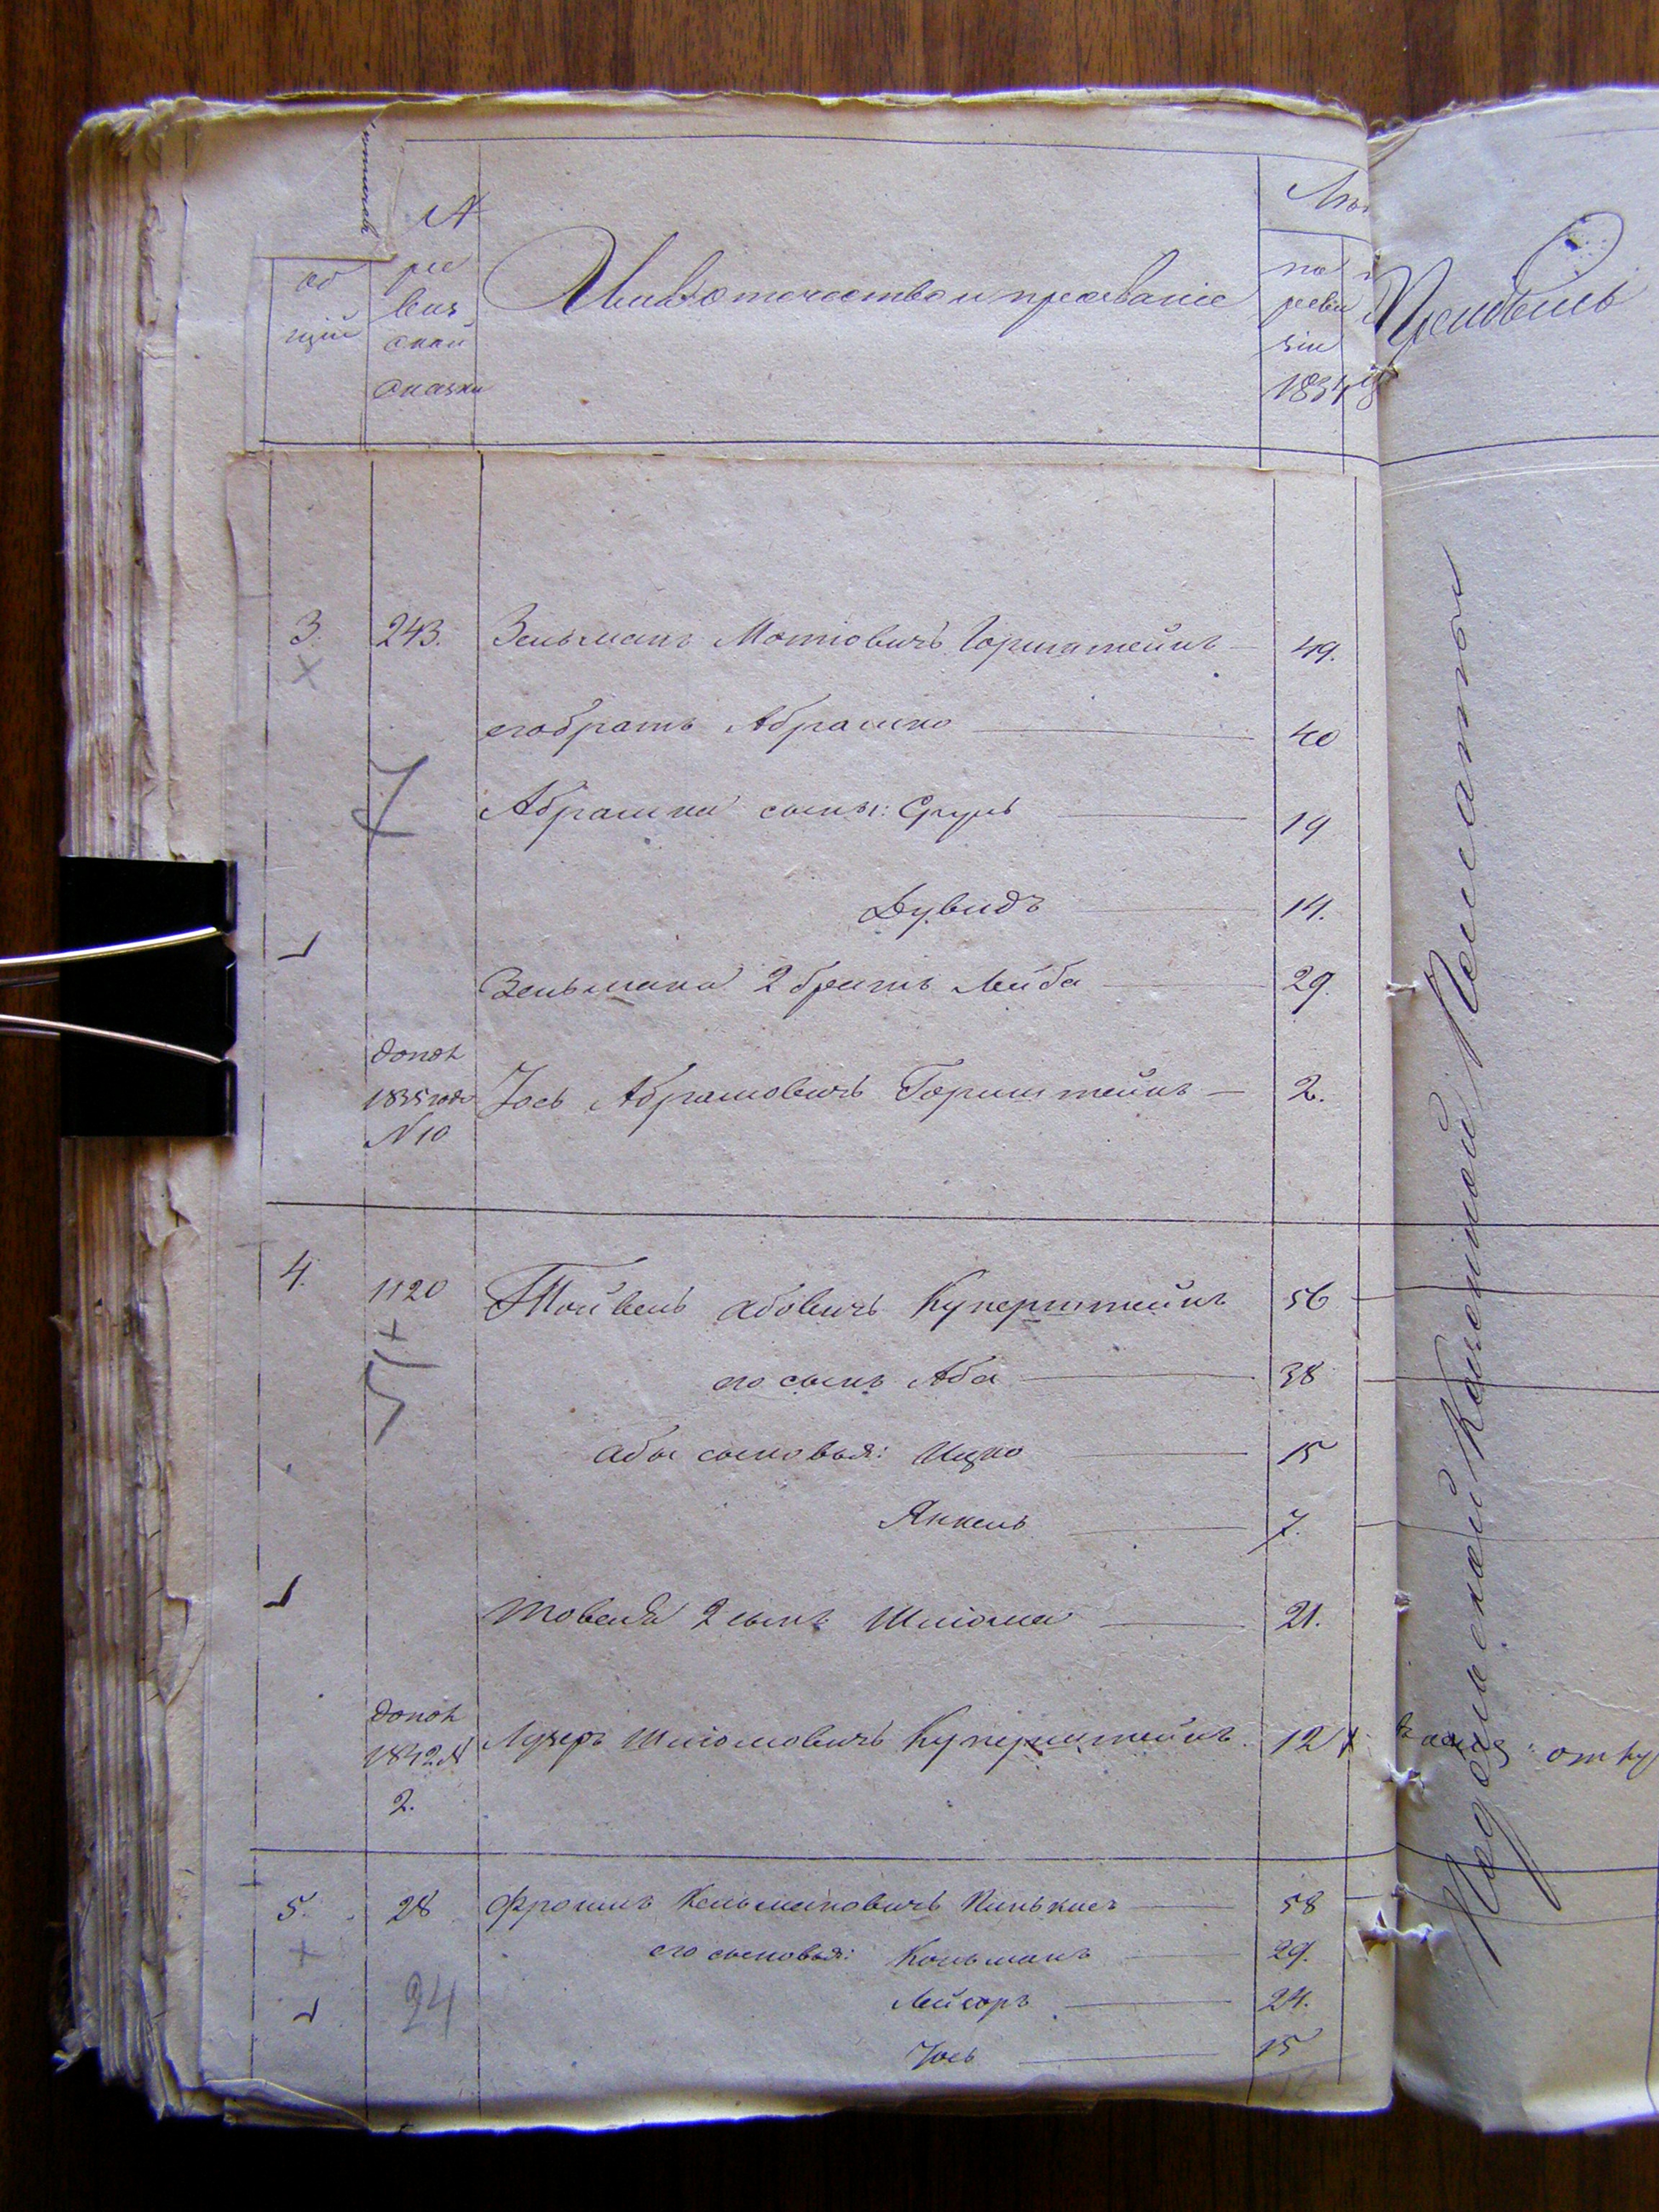 №
об
щій
ре
виз
ской
сказки
Имя отчество и прозваніе
Лѣт
по
реви
зіи
1834
3. 243. Зельманъ Мотіовичъ Горштейнъ — 49.
его братъ Абрашко — 40
Абрашки сыны: Сруль — 19
Дувидъ — 14.
Зельмана 2 братъ Лейба — 29.
допол
1835 года
№ 10
Іось Абрамовичъ Горштейнъ — 2.
4. 1120 Тойвель Абовичъ Куперштейнъ 56
его сынъ Аба — 38
Абы сыновья: Ицко — 15
Янкель — 7.
Товеля 2 сынъ Шліома — 21.
допол
1842 №
2.
Лузеръ Шліомовичъ Куперштейнъ 12
5. 28 Фроимъ Кельмановичъ Пинькисъ — 58
его сыновья: Кельманъ — 29.
Лейзоръ — 24.
Іось — 15
7
24